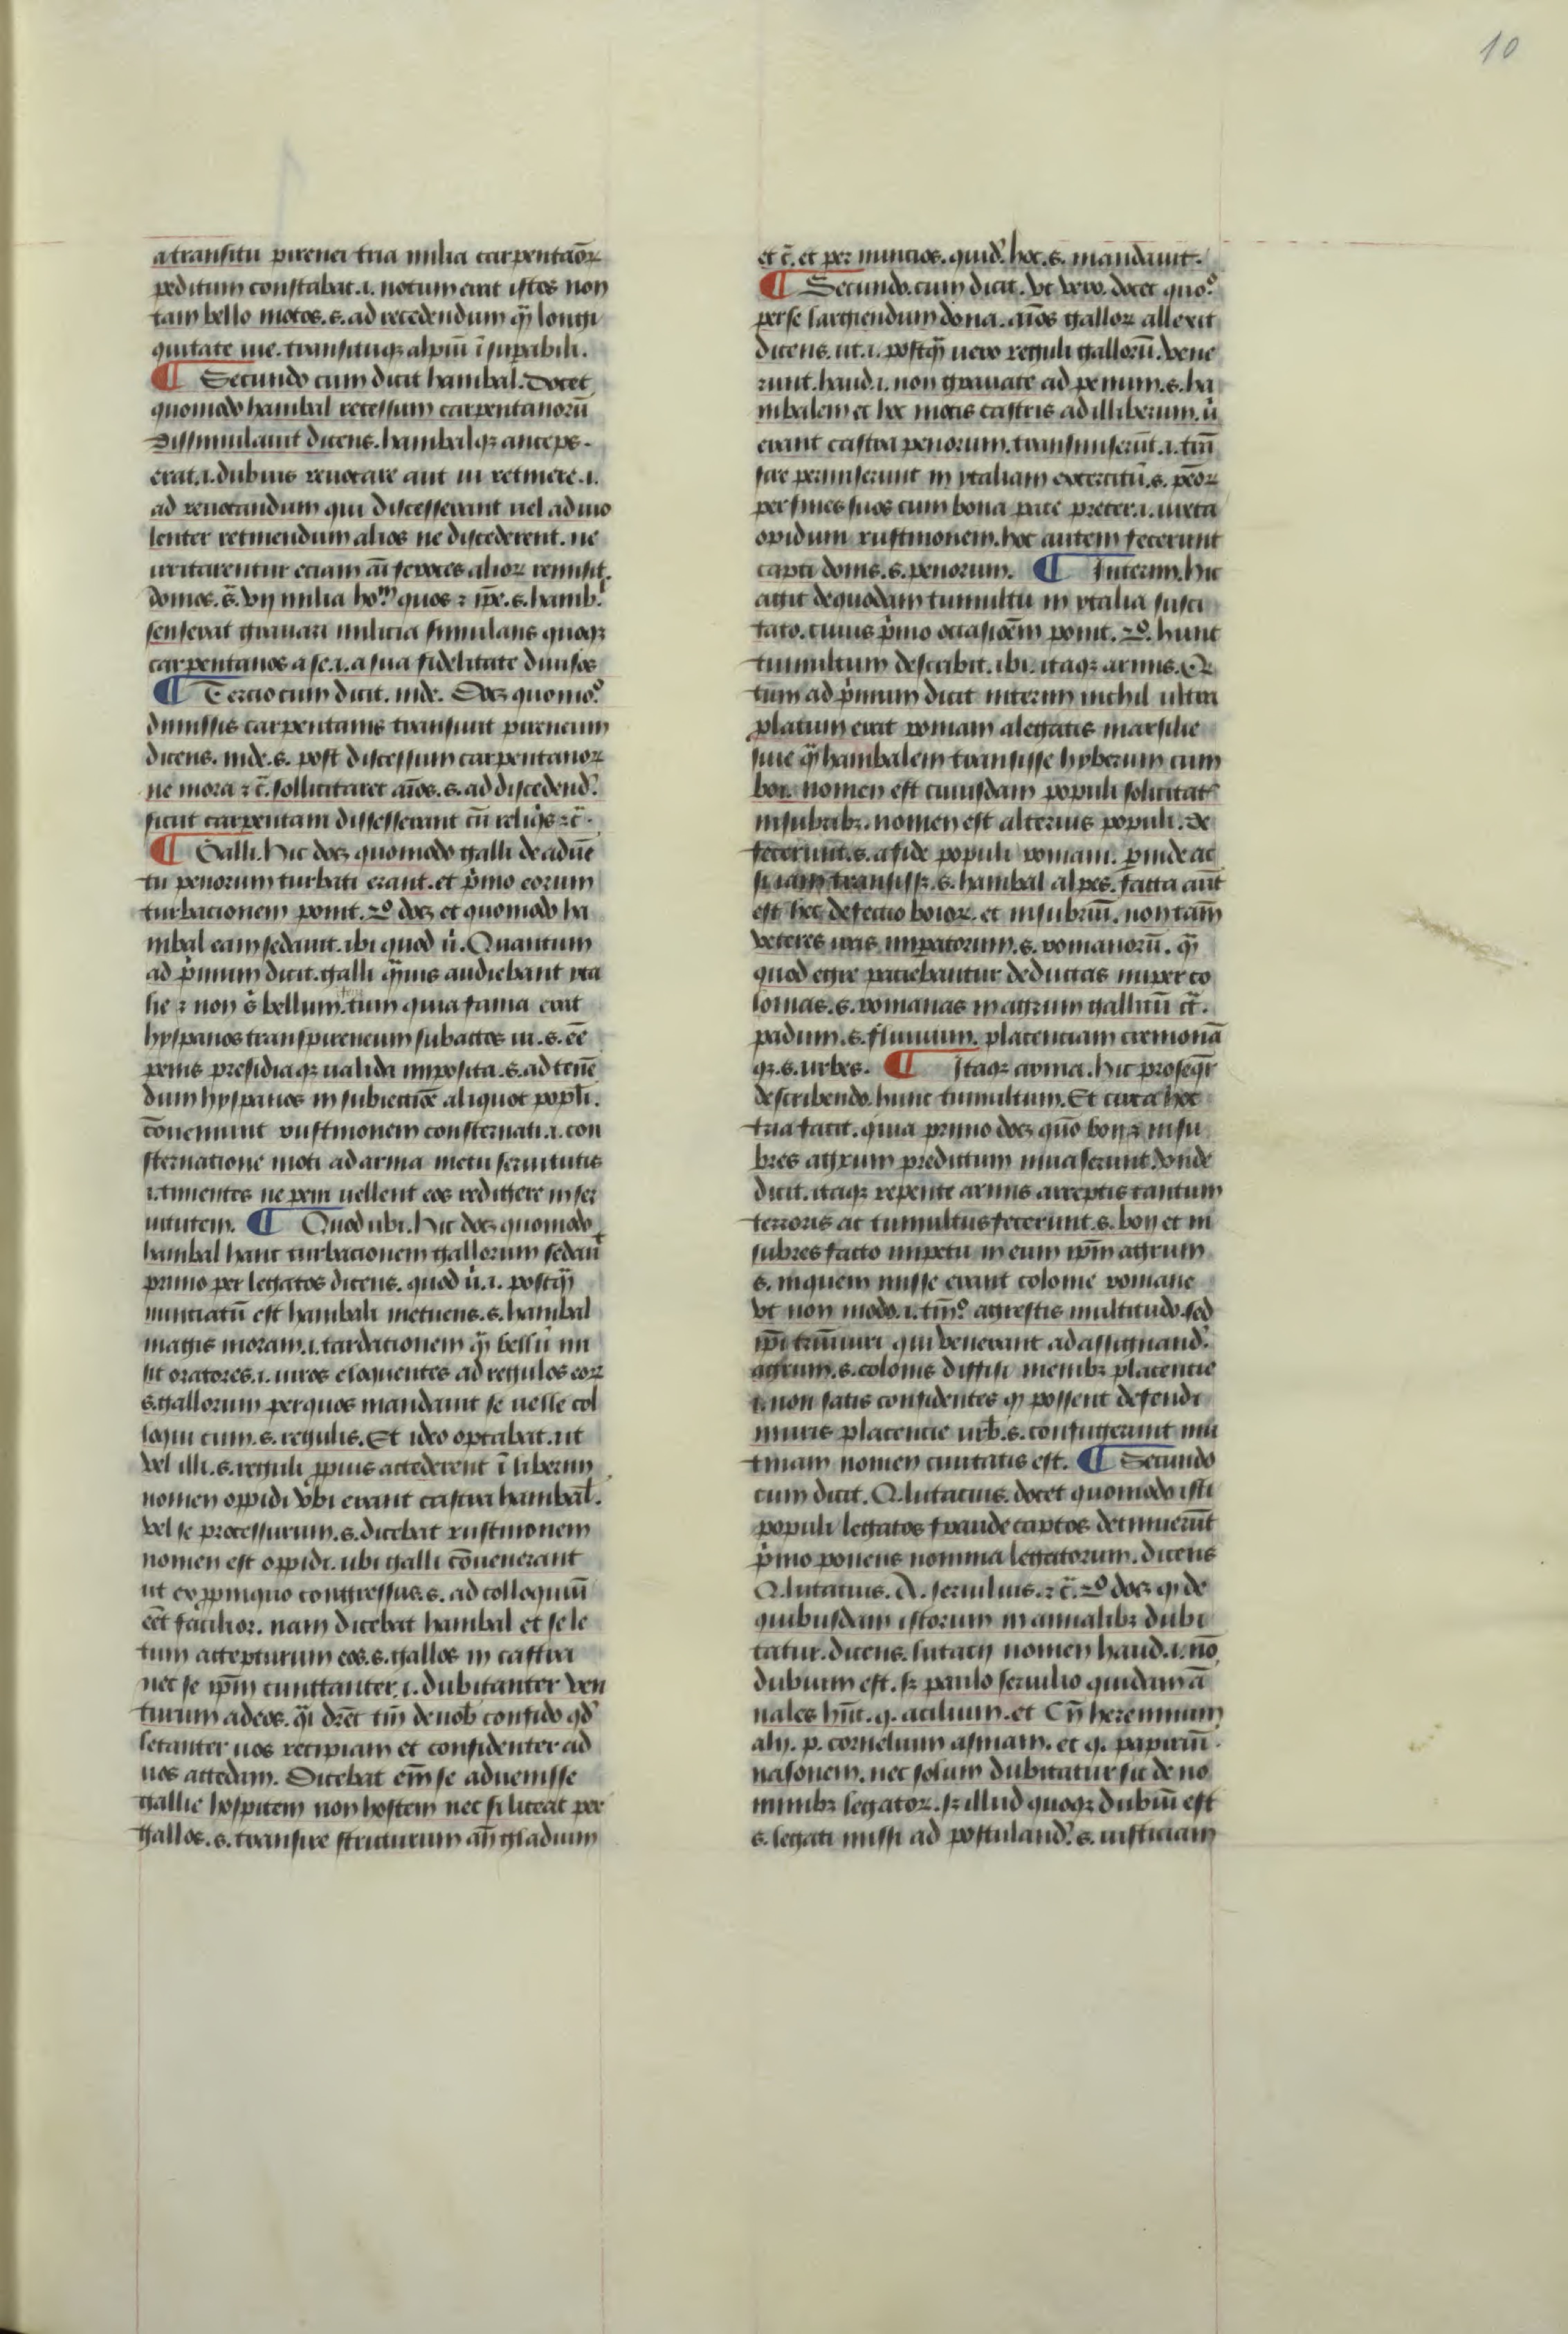 10
a transitu pirenei tria milia carpentãoꝝ
peditum constabat .i. notum erat istos non
tam bello motos .s. ad recedendum q̃ longi
quitate uie. transituqꝫ alpiũ ĩsuꝑabili.
¶ Secundo cum dicit hanibal. Docet
quomodo hanibal recessum carpentanorũ
Dissimulauit dicens. hanibalqꝫ anceps.
erat .i. dubius reuocare aut ui retinere .i.
ad reuocandum qui discesserant uel ad uio
lenter retinendum alios ne discederent. ne
irritarentur eciam aĩ feroces alioꝝ remisit.
domos. s̃. vij milia ho. quos ⁊ ip̃e .s. hanib.
senserat grauari milicia simulans quoqꝫ
carpentanos a se .i. a sua fidelitate dimisos
¶ Tercio cum dicit. inde. Docꝫ quomo°
dimissis carpentanis transiuit pireneum
dicens. inde .s. post discessum carpentanoꝝ
ne mora ⁊ c̃. sollicitaret aĩos .s. ad discedend'.
sicut carpentani dissesserant cũ reliq̃s ⁊c̃.
¶ Galli. Hic docꝫ quomodo galli de aduẽ
tu penorum turbati erant. et p̃mo eorum
turbacionem ponit. 2° docꝫ et quomodo ha
nibal eam sedauit. ibi quod ů. Quantum
ad p̃mum dicit. galli q̃uis audiebant yta
lie ⁊ non s̃ bellum. tum quia fama erat
hyspanos transpireneum subactos ui .s. eẽ
penis presidiaqꝫ ualida imposita .s. ad tenẽ
dum hyspanos in subiectiõe aliquot popl̃i.
cõueniunt rustinonem consternati .i. con
sternatione moti ad arma metu seruitutis
.i. timentes ne peni uellent eos reddigere in ser
uitutem. ¶ Quod ubi. Hic docꝫ quomodo
hanibal hanc turbacionem gallorum sedauĩt
primo per legatos dicens. quod ů .i. postq̃
nunciatũ est hanibali metuens .s. hanibal
magis moram .i. tardationem q̃ bellũ mi
sit oratores .i. uiros eloquentes ad regulos eoꝝ
.s. gallorum per quos mandauit se uelle col
loqui cum .s. regulis. Et ideo optabat. ut
vel illi .s. reguli ꝓpius accederent ĩ liberim
nomen oppidi vbi erant castra hanibal̃.
vel se processurum .s. dicebat rustinonem
nomen est oppidi. ubi galli cõuenerant
ut ex ꝓpinquo congressus .s. ad colloquiũ
eẽt facilior. nam dicebat hanibal et se le
tum accepturum eos .s. gallos in castra
nec se ip̃m cunctanter .i. dubitanter ven
turum ad eos. q̃i drẽt tm̃ de uob̃ confido qd'
letanter uos recipiam et confidenter ad
uos accedam. Dicebat em̃ se aduenisse
gallie hospitem non hostem nec si liceat per
gallos .s. transire stricturum añ gladium
et c̃. et per nuncios. quid'. hec .s. mandauit.
¶ Secundo. cum dicit. Vt vero. docet quo°
per se largiendum dona. aĩos galloꝝ allexit
dicens. ut .i. postq̃ uero reguli gallorũ. vene
runt. haud .i. non grauate ad penum .s. ha
nibalem et hec motis castris ad illiberum. ů
erant castra penorum. transmiserũt .i. trãn
sire permiserunt in ytaliam exercitũ .s. peõꝝ
per fines suos cum bona pace preter .i. iuxta
opidum rustinonem. hoc autem fecerunt
capti donis .s. penorum. ¶ Interim. hic
agit de quodam tumultu in ytalia susci
tato. cuius p̃mo occasiõem ponit. 2°. hunc
tumultum describit. ibi. itaqꝫ armis. Q
tum ad p̃mum dicit interim nichil ultra
ꝑlatum erat romam a legatis marsilie
siue q̃ hanibalem transisse hyberum cum
boi. nomen est cuiusdam populi solicitat
insubribꝫ. nomen est alterius populi. de
fecerunt .s. a fide populi romani. ꝑinde ac
si iam transissꝫ .s. hanibal alpes. facta aũt
est hec defectio boioꝝ. et insubriũ. non tam̃
veteres iras imꝑatorum .s. romanorũ. q̃
quod egre paciebantur deductas nuper co
lonias .s. romanas in agrum gallicũ c̃.
padum .s. fluuium. placenciam cremonã
qꝫ .s. urbes. ¶ Itaqꝫ arma. hic proseq̃r
describendo. hunc tumultum. Et circa hoc
tria facit. quia primo docꝫ quõ boij ⁊ insu
bres agrum predictum inuaserunt. vnde
dicit. itaqꝫ repente armis arreptis tantum
terroris ac tumultus fecerunt .s. boij et in
subres facto impetu in eum ip̃m agrum
.s. in quem misse erant colonie romane
vt non modo .i. tm̃° agrestis multitudo. sed
ip̃i triũuiri qui venerant ad assignand'.
agrum .s. colonis diffisi menibꝫ placencie
.i. non satis confidentes qꝫ possent defendi
muris placencie urb̃ .s. confugerunt mu
tinam nomen ciuitatis est. ¶ Secundo
cum dicit. Q. lutacius. docet quomodo isti
populi legatos fraude captos detinuerũt
p̃mo ponens nomina legatorum. dicens
Q. lutacius. A. seruilius. ⁊ c̃. 2° docꝫ qꝫ de
quibusdam istorum in annalibꝫ dubi
tatur. dicens. lutacij nomen haud .i. nõ
dubium est. sꝫ paulo seruilio quidam ã
nales hñt. q. acilium. et Cñ herennium
alij. p. cornelium asinam. et q. papiriũ.
nasonem. nec solum dubitatur sic de no
minibꝫ legatoꝝ. sꝫ illud quoqꝫ dubiũ est
.s. legati missi ad postuland'. s. iusticiam